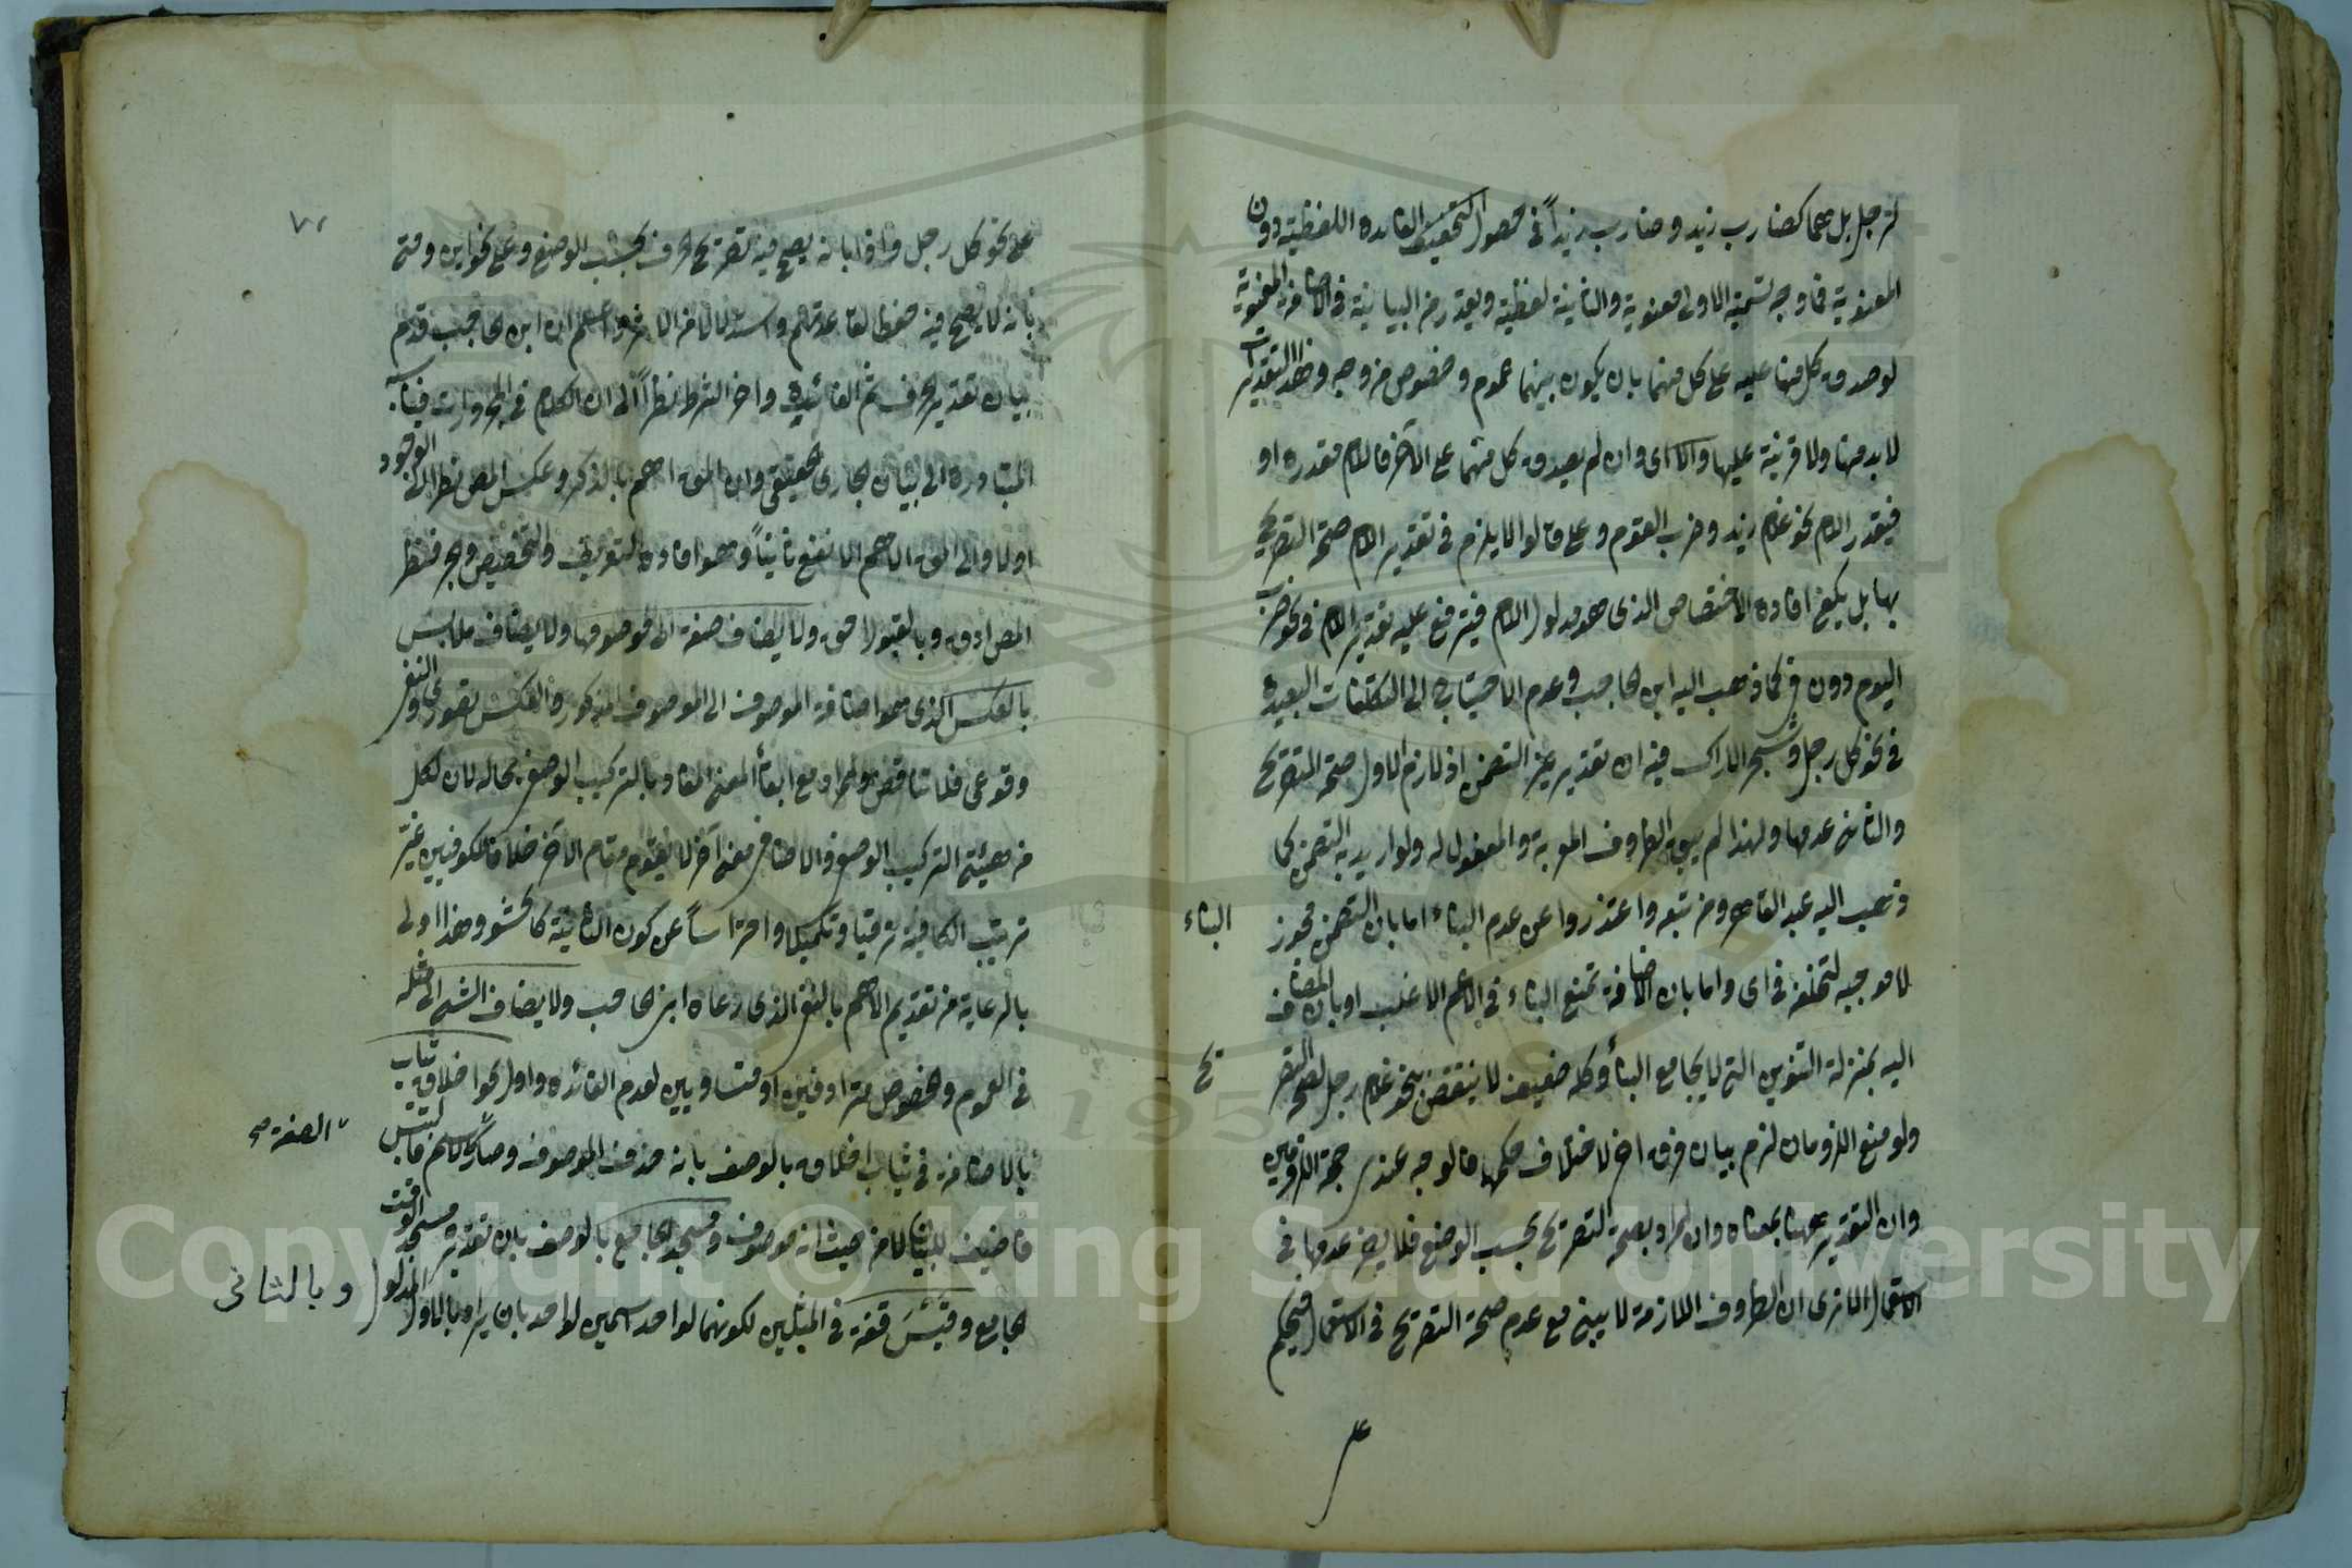 لرجل بل هما كضارب زيد وضارب زيداً في حصول التخفيف الفائدة اللفظية دون
المعنوية فما وجه تسمية الاولى معنوية والثانية لفظية ويقدر من البيانية في الاضافة المعنوية
لو صدق كل منهما عليه على كل منهما بان يكون بينهما عموم وخصوص من وجه وهذا التقديرات
لا بد منها ولا قرينة عليها والا اى وان لم يصدق كل منهما على الآخر فاللام مقدرة او
فيقدر اللام نحو غلام زيد وضرب القوم وعلى ما قالوا لا يلزم في تقدير اللام صحة التصريح
بها بل يكفى افادة الاختصاص الذى هو مدلول اللام فيتفرع عليه تقدير اللام في نحو ضرب
اليوم دون في كما ذهب اليه ابن الحاجب وعدم الاحتياج الى التكلفات البعيدة
في نحو كل رجل وشجر الاراك فيه ان تقدير غير التضمن اذ لازم الاول صحة التصريح
والثانى عدمها ولهذا لم يبن الظروف المعربة والمفعول له ولو اريد به التضمن كما
ذهب اليه عبد القاهر ومن تبعه واعتذروا عن عدم البناء اما بان التضمن مجوز
البناء
لا موجبه لتخلفه في اى واما بان الاضافة تمنع البناء في الاعم الاغلب او بان المضاف
اليه بمنزلة التنوين التى لا يجامع البناء وكله ضعيف لا ينتقض بنحو غلام رجل لصحة التصر
يح
ولو منع اللزومان لزم بيان فرق آخر لاختلاف حكمهما فالوجه عندى صحة اللزومين
وان التقدير ههنا بمعناه وان المراد بصحة التصريح بحسب الوضع فلا يضر عدمها في
الاستعمال الا ترى ان الظروف اللازمة لا يبنى مع عدم صحة التصريح في الاستعمال فيحكم
على
٧١
على نحو كل رجل واذا بانه يصح فيه تصريح الحرف بحسب الوضع وعلى نحو اين ومتى
بانه لا يصح فيه حفظا لقاعدتهم واستدلالا من الاثر واعلم ان ابن الحاجب قدم
بيان تقدير الحرف ثم الفائدة واخر الشرط نظراً الى ان الكلام في المجرورات فينا
المتبادرة الى بيان الجارى الحقيقى وان المق اهم بالذكر وعكس المص نظرا الى الوجود
اولا والى المق الاهم الانفع ثانياً وهو افادة التعريف والتخصيص والجر فنظر
المص ادق وبالقبول احق ولا يضاف صفة الى موصوفها ولا يضاف ملابس
بالعكس الذى هو اضافة الموصوف الى الموصوف المذكور والعكس تصورى والنفى
وقوعى فلا تناقض والمراد مع ابقاء المعنى المفاد بالتركيب الوصفى بحاله لان لكل
من هيئتى التركيب الوصفى والاضافى معنى آخر لا يقوم مقام الآخر خلافا للكوفيين غيّر
ترتيب الكافية ترقيا وتكميلا واحتراسا عن كون الثانية كالحشو وهذا اولى
بالرعاية من تقديم الاهم بالنفى الذى رعاه ابن الحاجب ولا يضاف الشئ الى مثله
في العموم والخصوص مترادفين او متساويين لعدم الفائدة واول نحو اخلاق ثياب
بالاضافة في ثياب اخلاق بالوصف بانه حذف الموصوف وصار كالاسم فالتبس
الصفة صح
فاضيف للبيان لا من حيث انه موصوف ومسجد الجامع بالوصف بان تقديره مسجد الوقت
الجامع وقَيْسَ قفة في المثلين لكونهما لواحد اسمين لواحد بان يراد بالاول المدلول وبالثانى